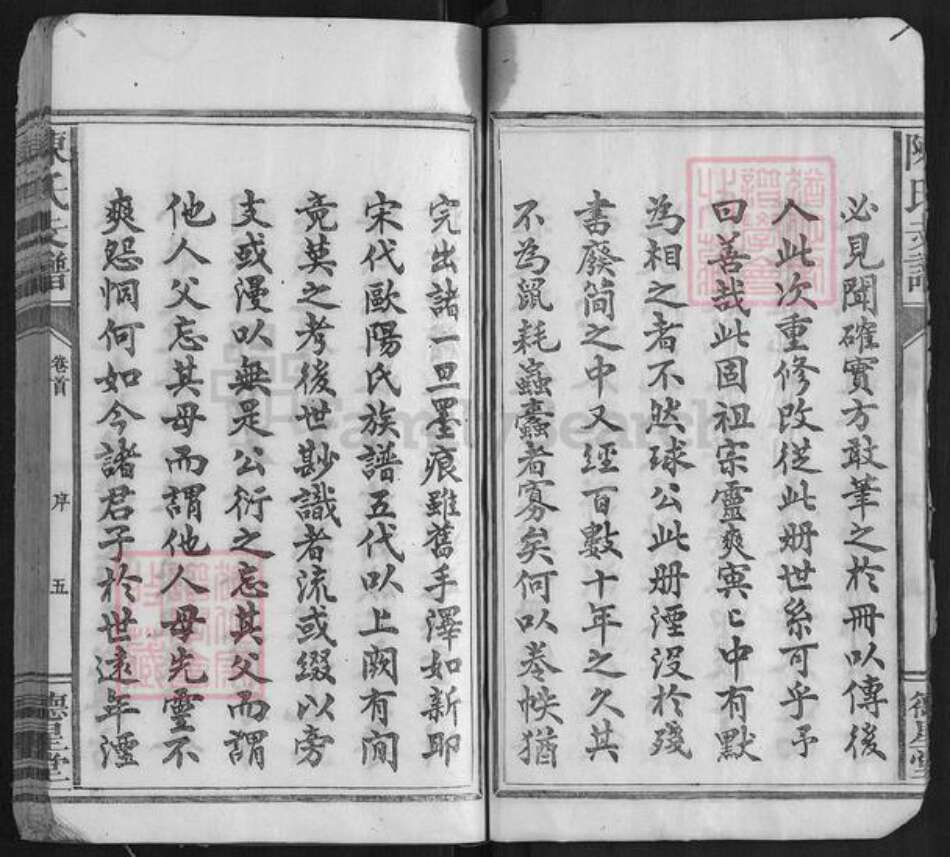 必見聞確實方敢筆之於冊以傳後
人此次重修改從此册世系可乎予
曰善哉此固祖宗靈爽寞〻中有默
為相之者不然球公此册湮没於殘
書廢简之中又經百數十年之久其
不為鼠耗蟲蠹者寡矣何以卷帙猶
完出諸一旦墨痕雖舊手澤如新即
宋代歐陽氏族譜五代以上闕有间
竟莫之考後世尠識者流或綴以旁
支或漫以無是公衍之忘其父而謂
他人父忘其母而謂他人母先靈不
爽怨恫何如今諸君子於世遠年湮
陳氏支譜
卷首
序
五
德星堂
FamilySearch